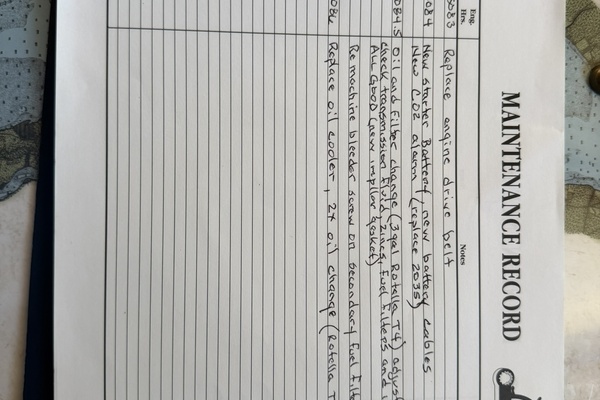 MAINTENANCE RECORD
Eng. Hrs.
Notes
3083 Replace engine drive belt
084 New starter Battery, new battery cables
New CO2 alarm (replace 2035)
084.5 Oil and Filter change (3gal Rotella T4) adjus
check transmission fluid, zincs, fuel filters and
ALL GOOD (new impllar gasket)
Re machine bleeder screw on secondary fuel filte
086 Replace oil cooler, 2x oil change (Rotella T